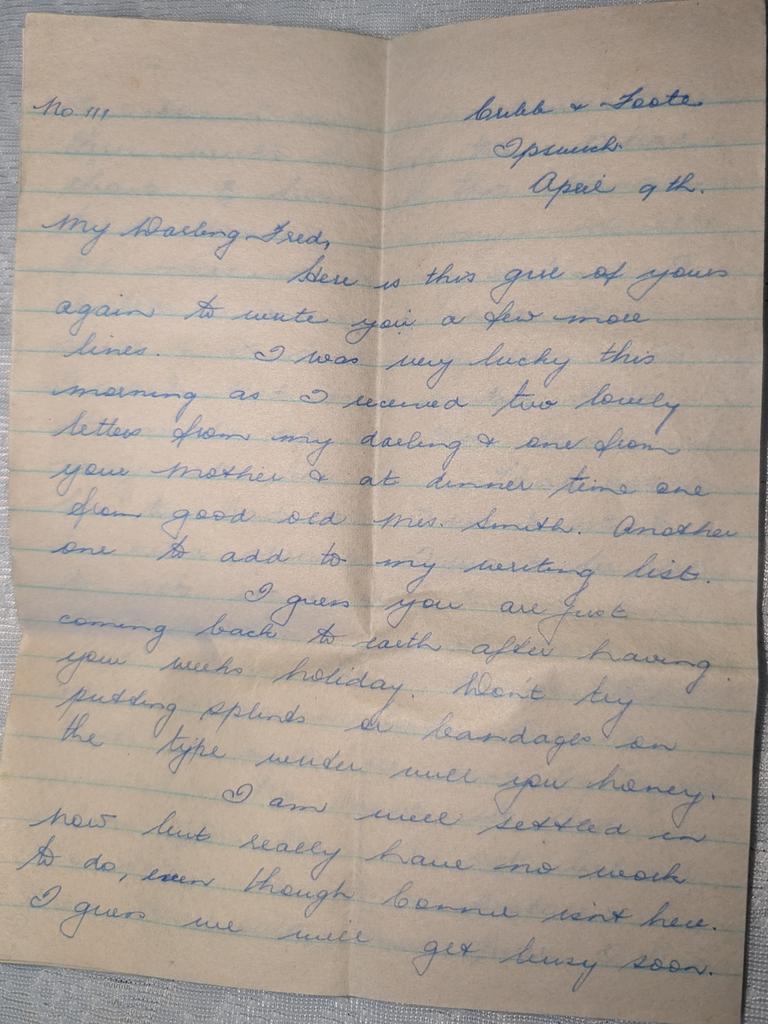 No 111
Cribb & Foote
Ipswich.
April 9th.
My Darling Fred,
Here is this girl of yours
again to write you a few more
lines. I was very lucky this
morning as I received two lovely
letters from my darling & one from
your Mother & at dinner time one
from good old Mrs. Smith. Another
one to add to my writing list.
I guess you are just
coming back to earth after having
your weeks holiday. Don't try
putting splints or bandages on
the type writer will you honey.
I am well settled in
now but really have no work
to do, even though Connie isnt here.
I guess we will get busy soon.